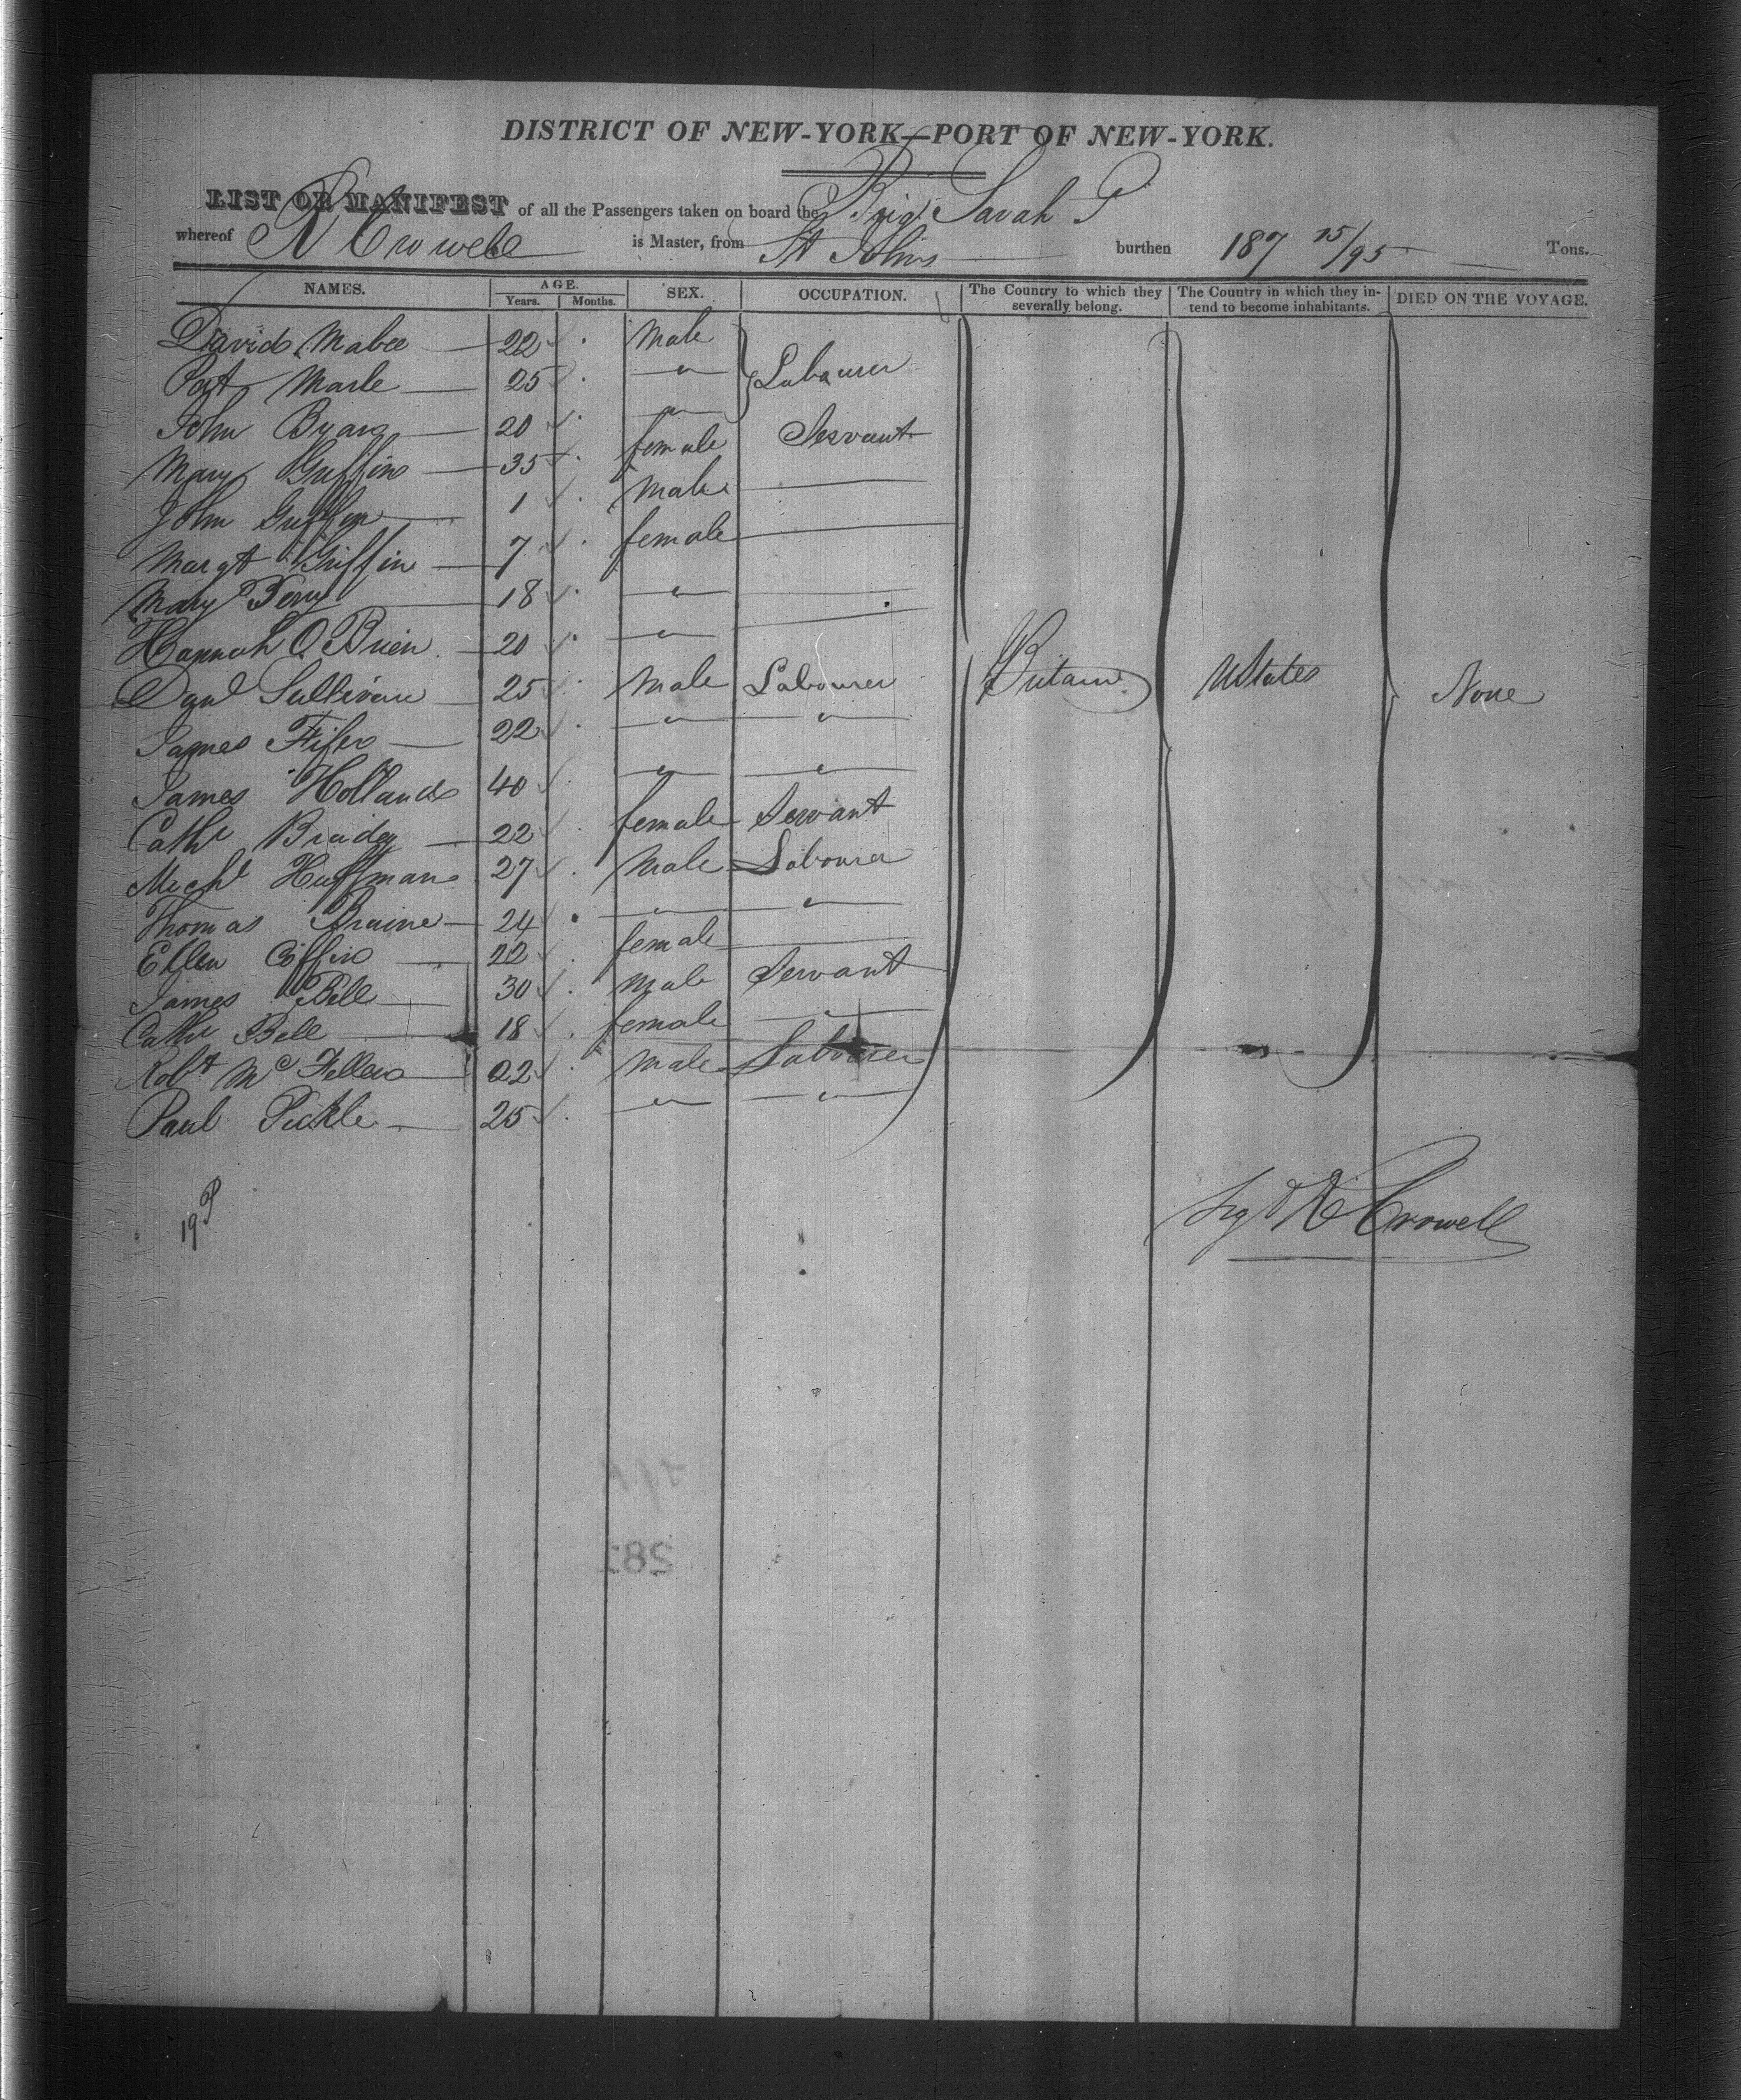 DISTRICT OF NEW-YORK—PORT OF NEW-YORK.
LIST OR MANIFEST of all the Passengers taken on board the Brig Sarah G
whereof R Crowell is Master, from St Johns burthen 187 15/95 Tons.
NAMES. AGE. Years. Months. SEX. OCCUPATION. The Country to which they severally belong. The Country in which they intend to become inhabitants. DIED ON THE VOYAGE.
David Mabee 22 Male
Pat 25 " Labourer
John 20 "
Mary Griffin 35 female Servant
John Griffin 1 Male
Margt Griffin 7 female
Mary Berry 18 "
Hannah O Brien 20 "
Danl Sullivan 25 Male Labourer Britain UStates None
James 22 " "
James Holland 40 " "
Cathe 22 female Servant
Michl Huffman 27 Male Labourer
Thomas Braine 24 " "
Ellen Coffin 22 female
James Bell 30 Male Servant
Cathe Bell 18 female "
Robt Mc Fellers 22 Male Labourer
Paul Pickle 25 " "
19 P
Sigd R Crowell